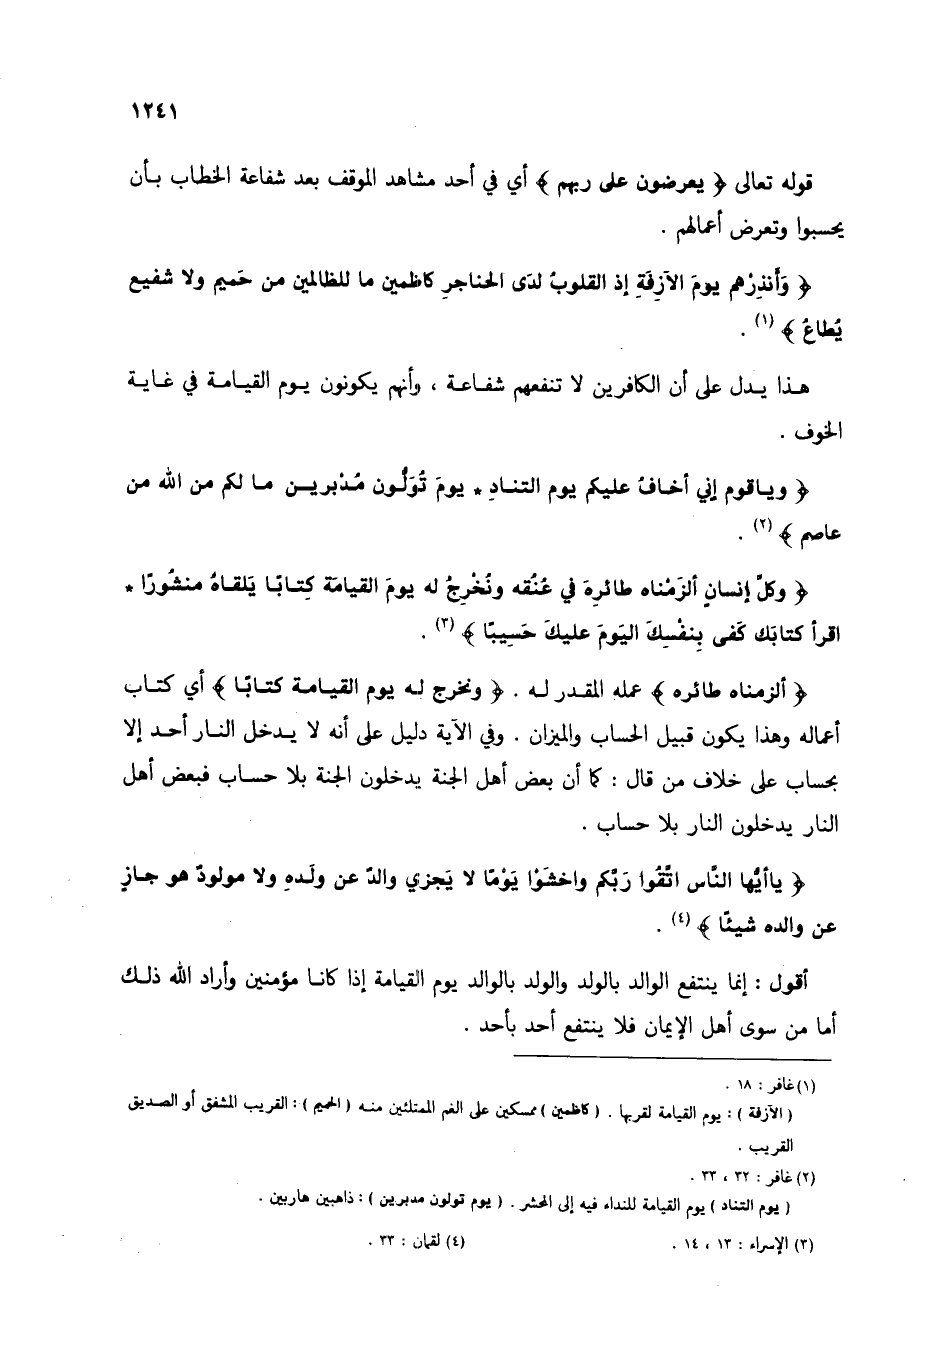 ١٢٤١
قوله تعالى ﴿ يعرضون على ربهم ﴾ أي في أحد مشاهد الموقف بعد شفاعة الخطاب بـأن
يحسبوا وتعرض أعمالهم .
﴿ وَأَنذِرْهم يومَ الآزِفَةِ إذ القلوبُ لدَى الحناجرِ كاظمين ما للظالمين من حَميم ولا شفيع
يُطاعُ ﴾ (١) .
هـذا يـدل على أن الكافرين لا تنفعهم شفـاعـة ، وأنهم يكونون يـوم القيـامـة في غـايـة
الخوف .
﴿ ويـاقوم إني أخـافُ عليكم يوم التنـادِ * يومَ تُوَلُّون مُـدْبريـن مـا لكم من الله من
عاصم ﴾ (٢) .
﴿ وكلَّ إنسانٍ ألزَمْناه طائرهَ في عُنُقه ونُخْرِجُ له يومَ القيامَة كِتـابًـا يَلقـاهُ منشُورًا *
اقرأ كتابَك كَفى بِنفْسِكَ اليَومَ عليكَ حَسِيبًا ﴾ (٣) .
﴿ ألزمناه طائره ﴾ عمله المقـدر لـه . ﴿ ونخرج لـه يوم القيامـة كتـابًـا ﴾ أي كتـاب
أعماله وهذا يكون قبيل الحساب والميزان . وفي الآية دليل على أنه لا يـدخل النـار أحـد إلا
بحساب على خلاف من قال : كما أن بعض أهل الجنة يدخلون الجنة بلا حساب فبعض أهل
النار يدخلون النار بلا حساب .
﴿ ياأيُّها النَّاس اتَّقُوا رَبَّكم واخشَوْا يَوْمًا لا يَجزي والدٌ عن ولَده ولا مولودٌ هو جـازٍ
عن والده شيئًا ﴾ (٤) .
أقول : إنما ينتفع الوالد بالولد والولد بالوالد يوم القيامة إذا كانـا مؤمنين وأراد الله ذلـك
أما من سوى أهل الإيمان فلا ينتفع أحد بأحد .
(١) غافر : ١٨ .
( الآزفة ) : يوم القيامة لقربها . ( كاظمين ) ممسكين على الغم الممتلئين منـه ( الحميم ) : القريب المشفق أو الصديق
القريب .
(٢) غافر : ٣٢ ، ٣٣ .
( يوم التناد ) يوم القيامة للنداء فيه إلى المحشر . ( يوم تولون مدبرين ) : ذاهبين هاربين .
(٣) الإسراء : ١٣ ، ١٤ . (٤) لقمان : ٣٣ .